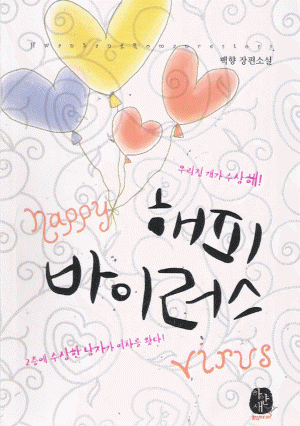 백향 장편소설
우리집 개가 수상해!
happy
해피
바이러스
2층에 수상한 남자가 이사를 왔다!
virus